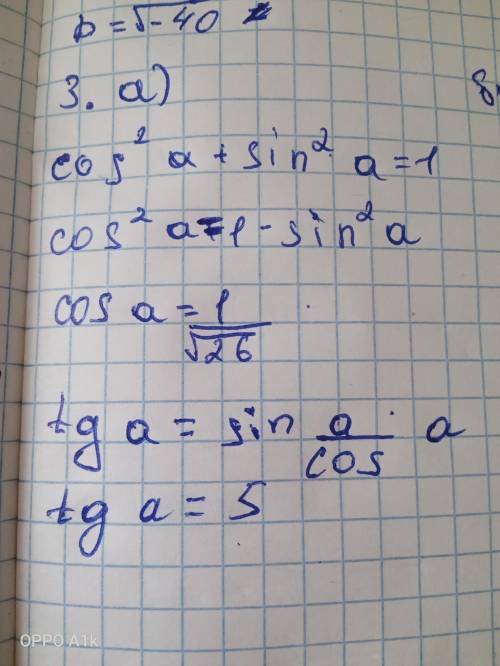 D = √-40
3. а)
cos² a + sin² a = 1
cos² a = 1 - sin² a
cos a = 1/√26
tg a = sin a/cos · a
tg a = 5
OPPO A1k